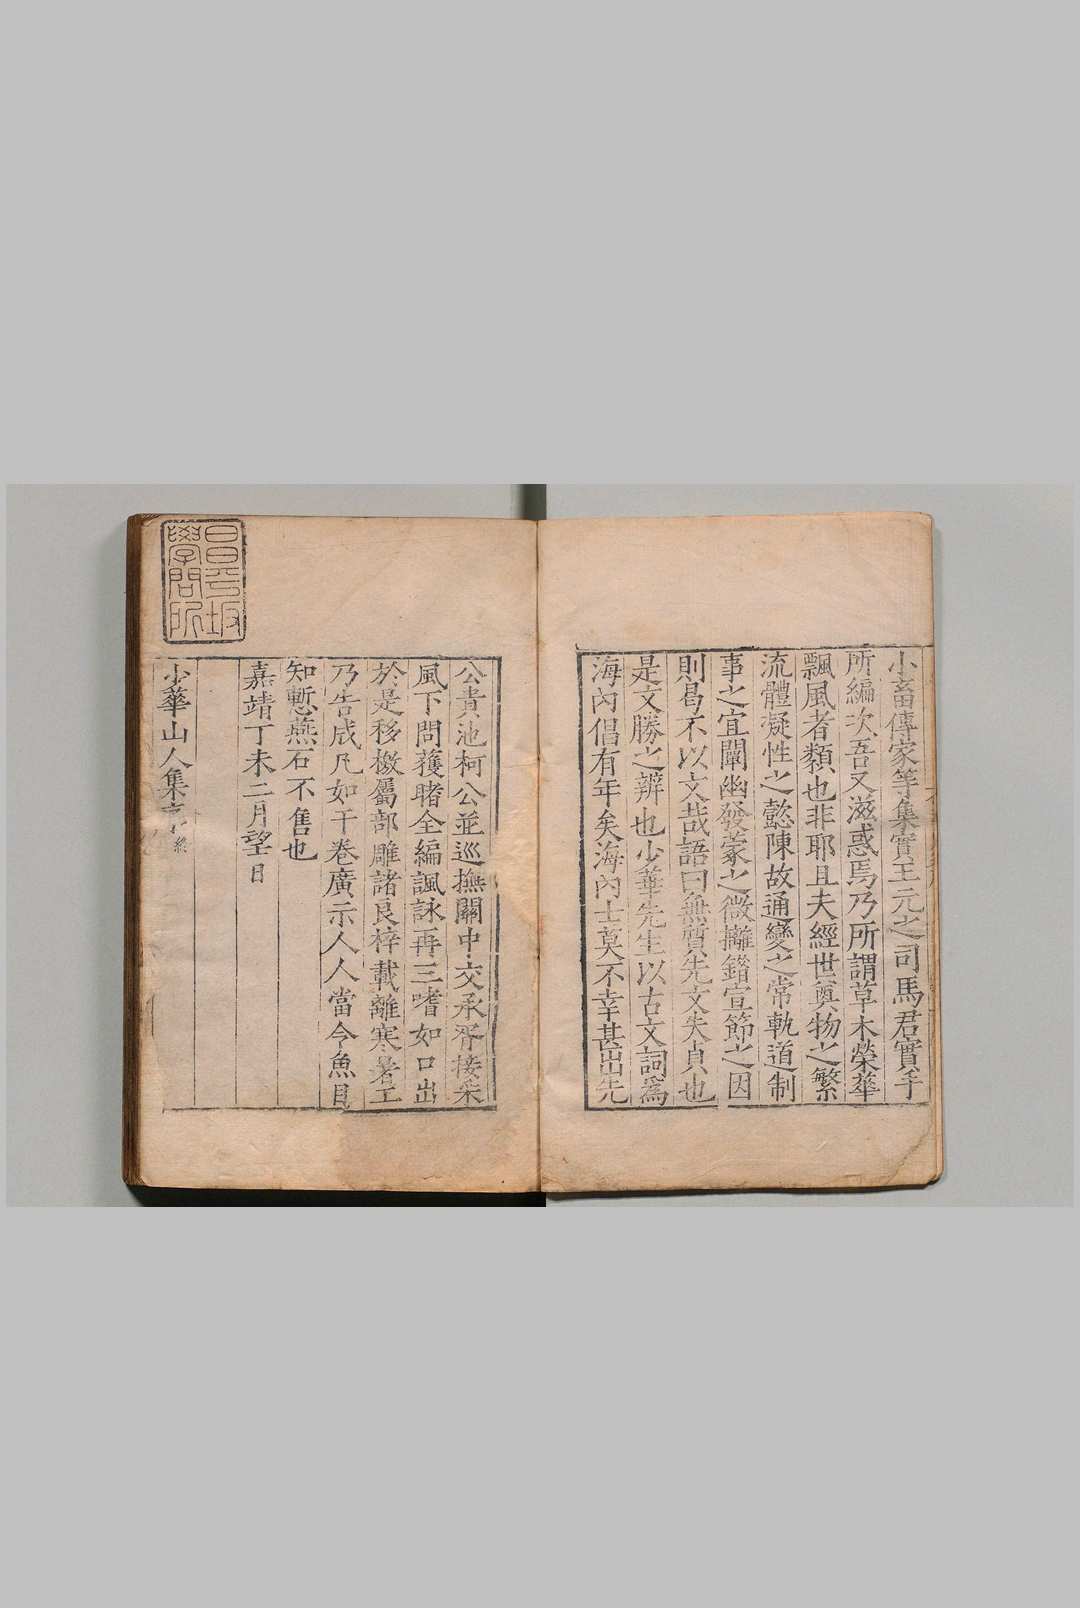 小畜傳家等集實王元之司馬君實手
所編次吾又滋惑焉乃所謂草木榮華
飄風者類也非耶且夫經世奠物之繁
流體凝性之懿陳故通變之常軌道制
事之宜闡幽發蒙之微摛錯宣節之因
則曷不以文哉語曰無質先文失貞也
是文勝之辨也少華先生以古文詞爲
海內倡有年矣海內士莫不幸甚出先
公貴池柯公並巡撫關中交承胥接采
風下問蒦睹全編諷詠再三嗜如口出
於是移檄屬部雕諸良梓載離寒暑工
乃告成凡如干卷廣示人人當今魚目
知慙燕石不售也
嘉靖丁未二月望日
少華山人集 終
昌平坂
學問所